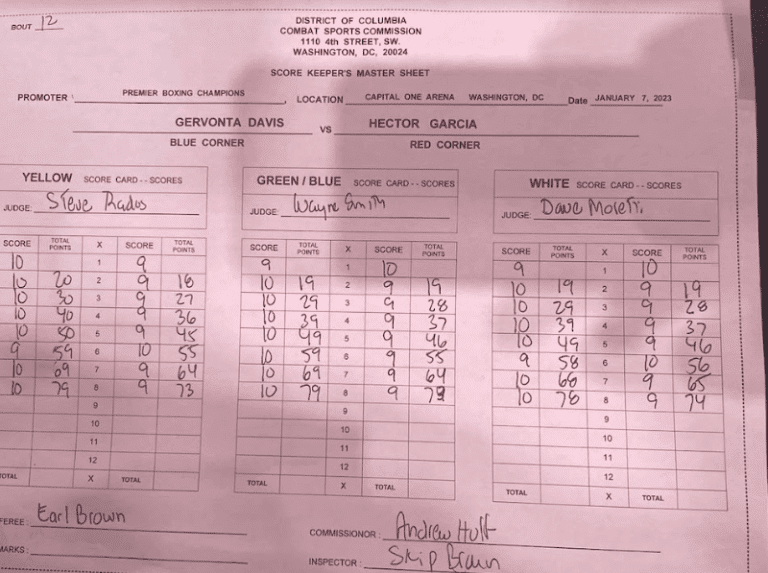 BOUT 12
DISTRICT OF COLUMBIA
COMBAT SPORTS COMMISSION
1110 4th STREET, SW.
WASHINGTON, DC, 20024
SCORE KEEPER'S MASTER SHEET
PROMOTER : PREMIER BOXING CHAMPIONS , LOCATION CAPITAL ONE ARENA WASHINGTON, DC Date JANUARY 7, 2023
GERVONTA DAVIS vs HECTOR GARCIA
BLUE CORNER RED CORNER
YELLOW SCORE CARD - - SCORES
JUDGE: Steve Rados
SCORE TOTAL POINTS X SCORE TOTAL POINTS
10 1 9
10 20 2 9 18
10 30 3 9 27
10 40 4 9 36
10 50 5 9 45
9 59 6 10 55
10 69 7 9 64
10 79 8 9 73
9
10
11
12
TOTAL X TOTAL
GREEN / BLUE SCORE CARD - - SCORES
JUDGE: Wayne Smith
SCORE TOTAL POINTS X SCORE TOTAL POINTS
9 1 10
10 19 2 9 19
10 29 3 9 28
10 39 4 9 37
10 49 5 9 46
10 59 6 9 55
10 69 7 9 64
10 79 8 9 73
9
10
11
12
TOTAL X TOTAL
WHITE SCORE CARD - - SCORES
JUDGE: Dave Moretti
SCORE TOTAL POINTS X SCORE TOTAL POINTS
9 1 10
10 19 2 9 19
10 29 3 9 28
10 39 4 9 37
10 49 5 9 46
9 58 6 10 56
10 68 7 9 65
10 78 8 9 74
9
10
11
12
TOTAL X TOTAL
FEREE: Earl Brown
MARKS:
COMMISSIONOR: Andrew Huff
INSPECTOR: Skip Brown